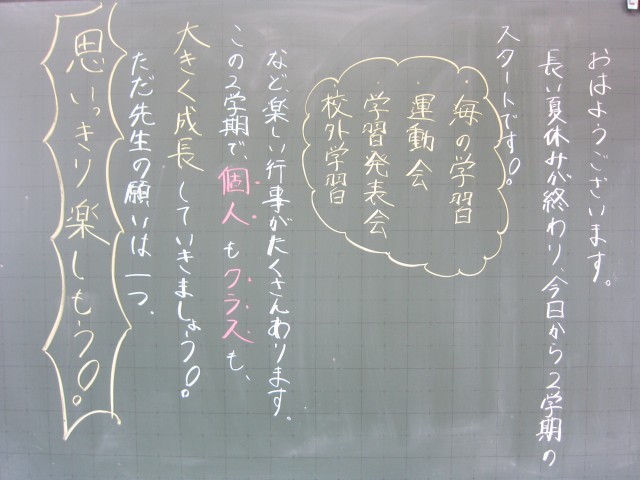 おはようございます。
長い夏休みが終わり、今日から2学期の
スタートです。
・海の学習
・運動会
・学習発表会
・校外学習
など、楽しい行事がたくさんあります。
この2学期で、個人もクラスも、
大きく成長していきましょう。
ただ先生の願いは一つ、
思いっきり楽しもう。